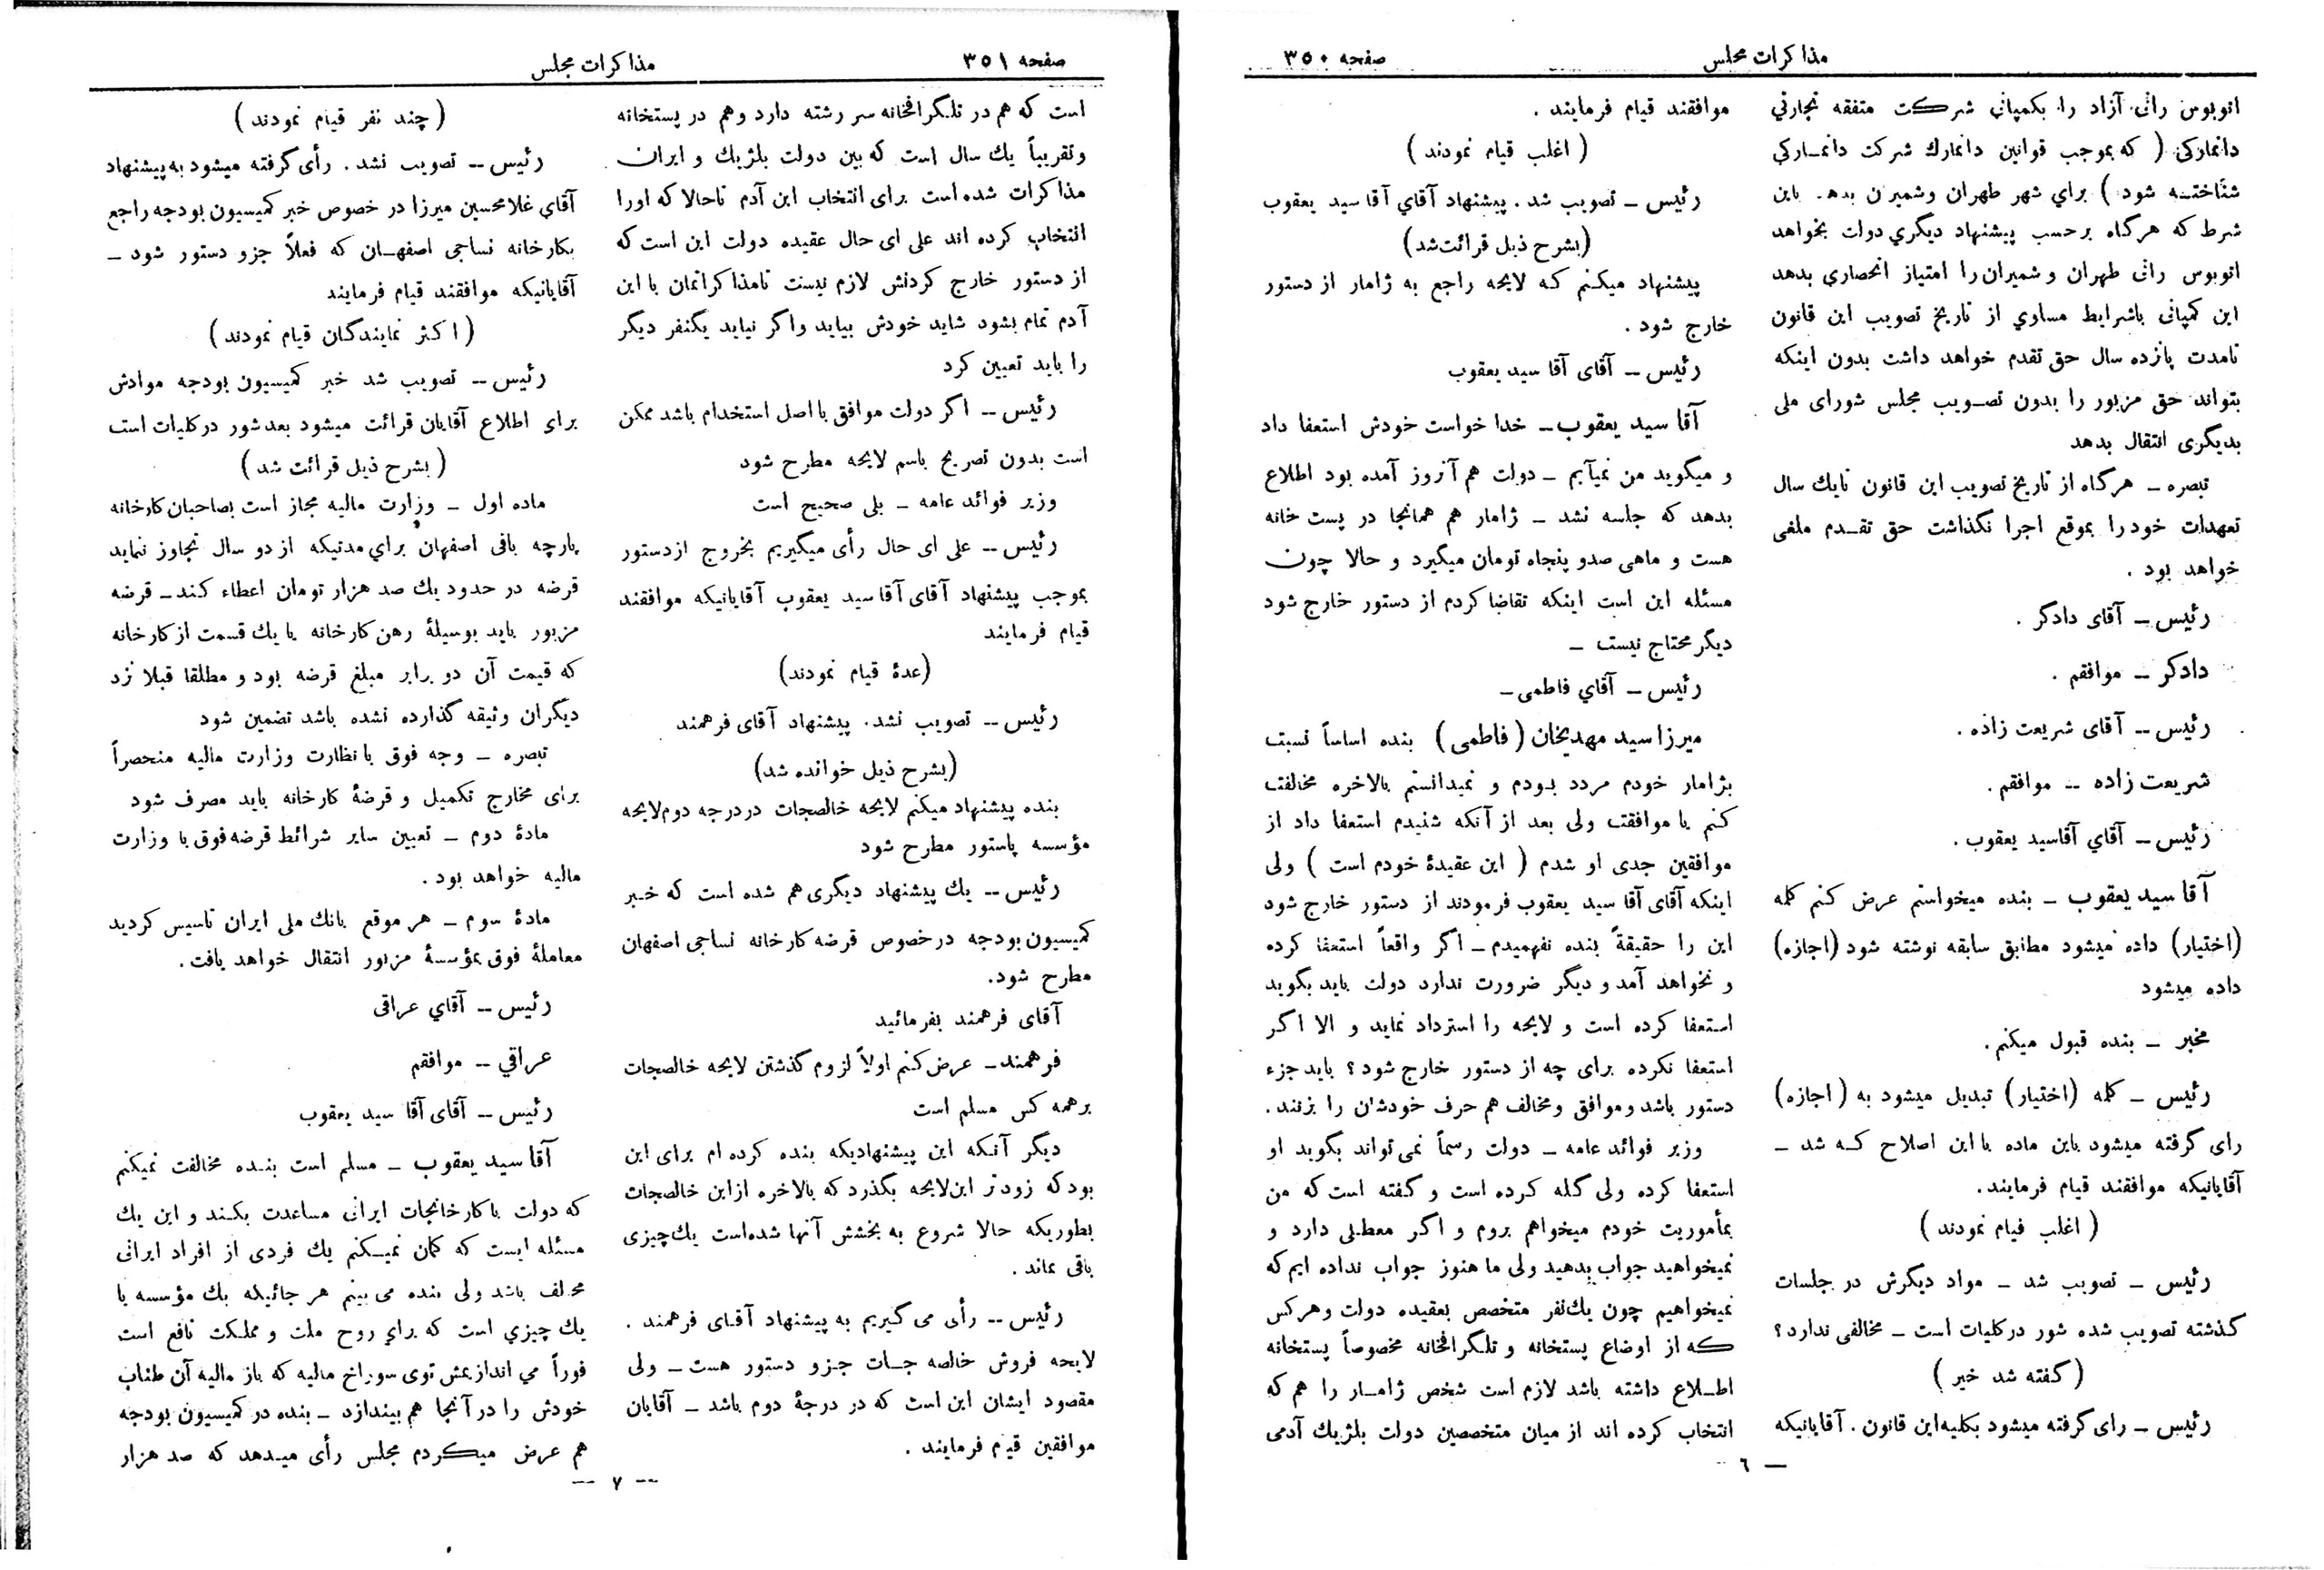 مذاکرات مجلس
صفحه ۳۵۰
اتوبوس رانی آزاد را بکمپانی شرکت متفقه تجارتی
دانمارکی ( که بموجب قوانین دانمارك شرکت دانمارکي
شناخته شود ) براي شهر طهران وشمیران بدهد باین
شرط که هرگاه برحسب پیشنهاد دیگري دولت بخواهد
اتوبوس رانی طهران و شمیران را امتیاز انحصاري بدهد
این کمپانی باشرایط مساوي از تاریخ تصویب این قانون
تامدت پانزده سال حق تقدم خواهد داشت بدون اینکه
بتواند حق مزبور را بدون تصویب مجلس شورای ملی
بدیگری انتقال بدهد
تبصره ـ هرگاه از تاریخ تصویب این قانون تایك سال
تعهدات خود را بموقع اجرا نگذاشت حق تقدم ملغی
خواهد بود .
رئیس ـ آقای دادگر .
دادگر ـ موافقم .
رئیس ـ آقای شریعت زاده .
شریعت زاده ـ موافقم .
رئیس ـ آقاي آقاسید یعقوب .
آقا سید یعقوب ـ بنده میخواستم عرض کنم کلمه
(اختیار) داده نمیشود مطابق سابقه نوشته شود (اجازه)
داده میشود
مخبر ـ بنده قبول میکنم .
رئیس ـ کلمه (اختیار) تبدیل میشود به (اجازه)
رای گرفته میشود باین ماده با این اصلاح که شد ـ
آقایانیکه موافقند قیام فرمایند .
( اغلب قیام نمودند )
رئیس ـ تصویب شد ـ مواد دیگرش در جلسات
گذشته تصویب شده شور درکلیات است ـ مخالفی ندارد ؟
( گفته شد خیر )
رئیس ـ رای گرفته میشود بکلیه این قانون . آقایانیکه
موافقند قیام فرمایند .
( اغلب قیام نمودند )
رئیس ـ تصویب شد . پیشنهاد آقاي آقا سید یعقوب
(بشرح ذیل قرائت شد)
پیشنهاد میکنم که لایحه راجع به ژامار از دستور
خارج شود .
رئیس ـ آقای آقا سید یعقوب
آقا سید یعقوب ـ خدا خواست خودش استعفا داد
و میگوید من نمیآیم ـ دولت هم آنروز آمده بود اطلاع
بدهد که جلسه نشد ـ ژامار هم همانجا در پست خانه
هست و ماهی صدو پنجاه تومان میگیرد و حالا چون
مسئله این است اینکه تقاضا کردم از دستور خارج شود
دیگر محتاج نیست ـ
رئیس ـ آقاي فاطمی ـ
میرزا سید مهدیخان (فاطمی) بنده اساساً نسبت
بژامار خودم مردد بودم و نمیدانستم بالاخره مخالفت
کنم یا موافقت ولی بعد از آنکه شنیدم استعفا داد از
موافقین جدی او شدم ( این عقیدهٔ خودم است ) ولی
اینکه آقای آقا سید یعقوب فرمودند از دستور خارج شود
این را حقیقةً بنده نفهمیدم ـ اگر واقعاً استعفا کرده
و نخواهد آمد و دیگر ضرورت ندارد دولت باید بگوید
استعفا کرده است و لایحه را استرداد نماید و الا اگر
استعفا نکرده برای چه از دستور خارج شود ؟ باید جزء
دستور باشد و موافق و مخالف هم حرف خودشان را بزنند .
وزیر فوائد عامه ـ دولت رسماً نمی تواند بگوید او
استعفا کرده ولی گله کرده است و گفته است که من
بمأموریت خودم میخواهم بروم و اگر معطلی دارد و
نمیخواهید جواب بدهید ولی ما هنوز جواب نداده ایم که
نمیخواهیم چون یك نفر متخصص بعقیده دولت وهرکس
که از اوضاع پستخانه و تلگرافخانه مخصوصاً پستخانه
اطلاع داشته باشد لازم است شخص ژامار را هم که
انتخاب کرده اند از میان متخصصین دولت بلژیك آدمی
— ٦ —
صفحه ۳۵۱
مذاکرات مجلس
است که هم در تلگرافخانه سر رشته دارد وهم در پستخانه
وتقریباً یك سال است که بین دولت بلژیك و ایران
مذاکرات شده است برای انتخاب این آدم تاحالا که اورا
انتخاب کرده اند علی ای حال عقیده دولت این است که
از دستور خارج کردنش لازم نیست تامذاکراتمان با این
آدم تمام بشود شاید خودش بیاید واگر نیاید یکنفر دیگر
را باید تعیین کرد
رئیس ـ اگر دولت موافق با اصل استخدام باشد ممکن
است بدون تصریح باسم لایحه مطرح شود
وزیر فوائد عامه ـ بلی صحیح است
رئیس ـ علی ای حال رأی میگیریم بخروج از دستور
بموجب پیشنهاد آقای آقا سید یعقوب آقایانیکه موافقند
قیام فرمایند
(عدهٔ قیام نمودند)
رئیس ـ تصویب نشد . پیشنهاد آقای فرهمند
(بشرح ذیل خوانده شد)
بنده پیشنهاد میکنم لایحه خالصجات دردرجه دوم لایحه
مؤسسه پاستور مطرح شود
رئیس ـ یك پیشنهاد دیگری هم شده است که خبر
کمیسیون بودجه درخصوص قرضه کارخانه نساجی اصفهان
مطرح شود .
آقای فرهمند بفرمائید
فرهمند ـ عرض کنم اولاً لزوم گذشتن لایحه خالصجات
برهمه کس مسلم است
دیگر آنکه این پیشنهادیکه بنده کرده ام برای این
بود که زودتر این لایحه بگذرد که بالاخره از این خالصجات
بطوریکه حالا شروع به بخشش آنها شده است یك چیزی
باقی بماند .
رئیس ـ رأی می گیریم به پیشنهاد آقای فرهمند .
لایحه فروش خالصه جات جزو دستور هست ـ ولی
مقصود ایشان این است که در درجهٔ دوم باشد ـ آقایان
موافقین قیام فرمایند .
(چند نفر قیام نمودند)
رئیس ـ تصویب نشد . رأی گرفته میشود به پیشنهاد
آقاي غلامحسین میرزا در خصوص خبر کمیسیون بودجه راجع
بکارخانه نساجی اصفهان که فعلاً جزو دستور شود ـ
آقایانیکه موافقند قیام فرمایند
(اکثر نمایندگان قیام نمودند)
رئیس ـ تصویب شد خبر کمیسیون بودجه موادش
برای اطلاع آقایان قرائت میشود بعد شور درکلیات است
(بشرح ذیل قرائت شد)
ماده اول ـ وزارت مالیه مجاز است بصاحبان کارخانه
پارچه بافی اصفهان براي مدتیکه از دو سال تجاوز ننماید
قرضه در حدود یك صد هزار تومان اعطاء کند ـ قرضه
مزبور باید بوسیلهٔ رهن کارخانه یا یك قسمت از کارخانه
که قیمت آن دو برابر مبلغ قرضه بود و مطلقا قبلا نزد
دیگران وثیقه گذارده نشده باشد تضمین شود
تبصره ـ وجه فوق با نظارت وزارت مالیه منحصراً
برای مخارج تکمیل و قرضهٔ کارخانه باید مصرف شود
مادهٔ دوم ـ تعیین سایر شرائط قرضه فوق با وزارت
مالیه خواهد بود .
مادهٔ سوم ـ هر موقع بانك ملی ایران تاسیس گردید
معاملهٔ فوق بمؤسسهٔ مزبور انتقال خواهد یافت .
رئیس ـ آقاي عراقی
عراقي ـ موافقم
رئیس ـ آقای آقا سید یعقوب
آقا سید یعقوب ـ مسلم است بنده مخالفت نمیکنم
که دولت با کارخانجات ایرانی مساعدت بکند و این یك
مسئله ایست که گمان نمیکنم یك فردی از افراد ایرانی
مخالف باشد ولی بنده می بینم هر جائیکه یك مؤسسه یا
یك چیزي است که براي روح ملت و مملکت نافع است
فوراً می اندازیمش توی سوراخ مالیه که باز مالیه آن طناب
خودش را در آنجا هم بیندازد ـ بنده در کمیسیون بودجه
هم عرض میکردم مجلس رأی میدهد که صد هزار
— ۷ —